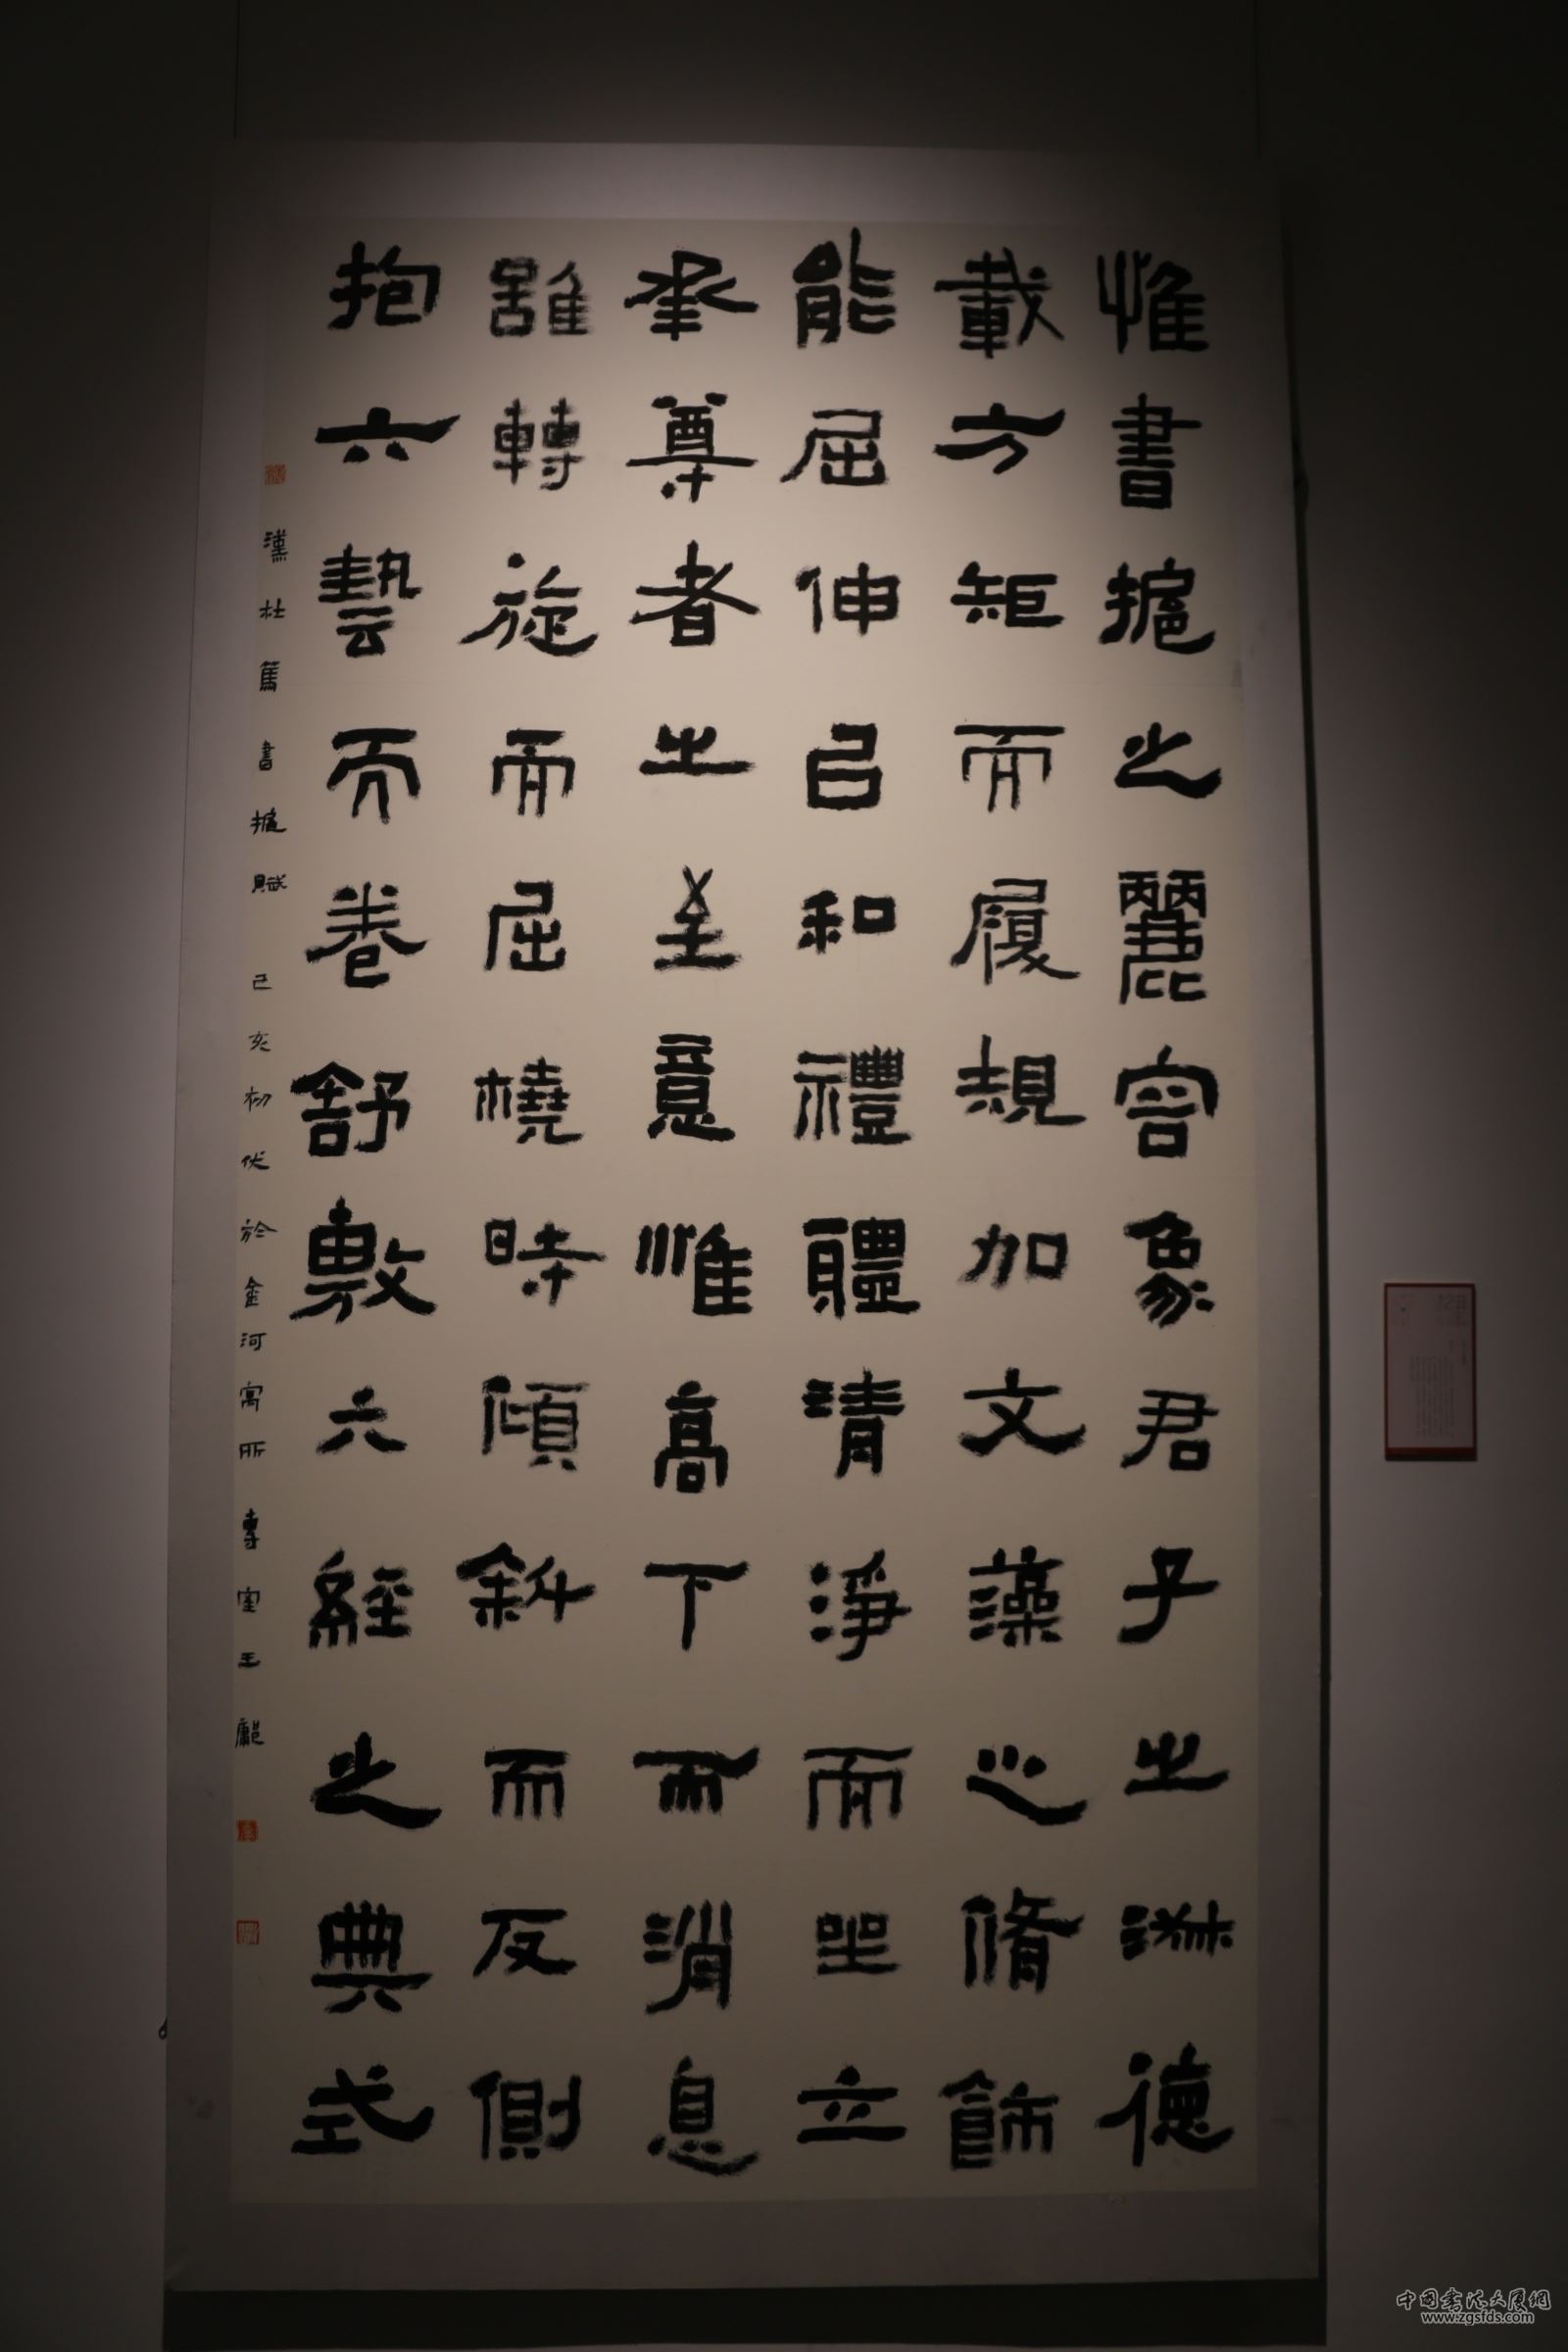 惟書㯳之麗容象君子之淑德
載方矩而履規加文藻之脩飾
能屈伸㠯和禮體清淨而坐立
承尊者之至意惟高下而消息
雖轉旋而屈橈時傾斜而反側
抱六藝而卷舒敷六經之典式
漢杜篤書㯳賦己亥初伏於金河寓所專室王
中國書法大厦網
www.zgsfds.com